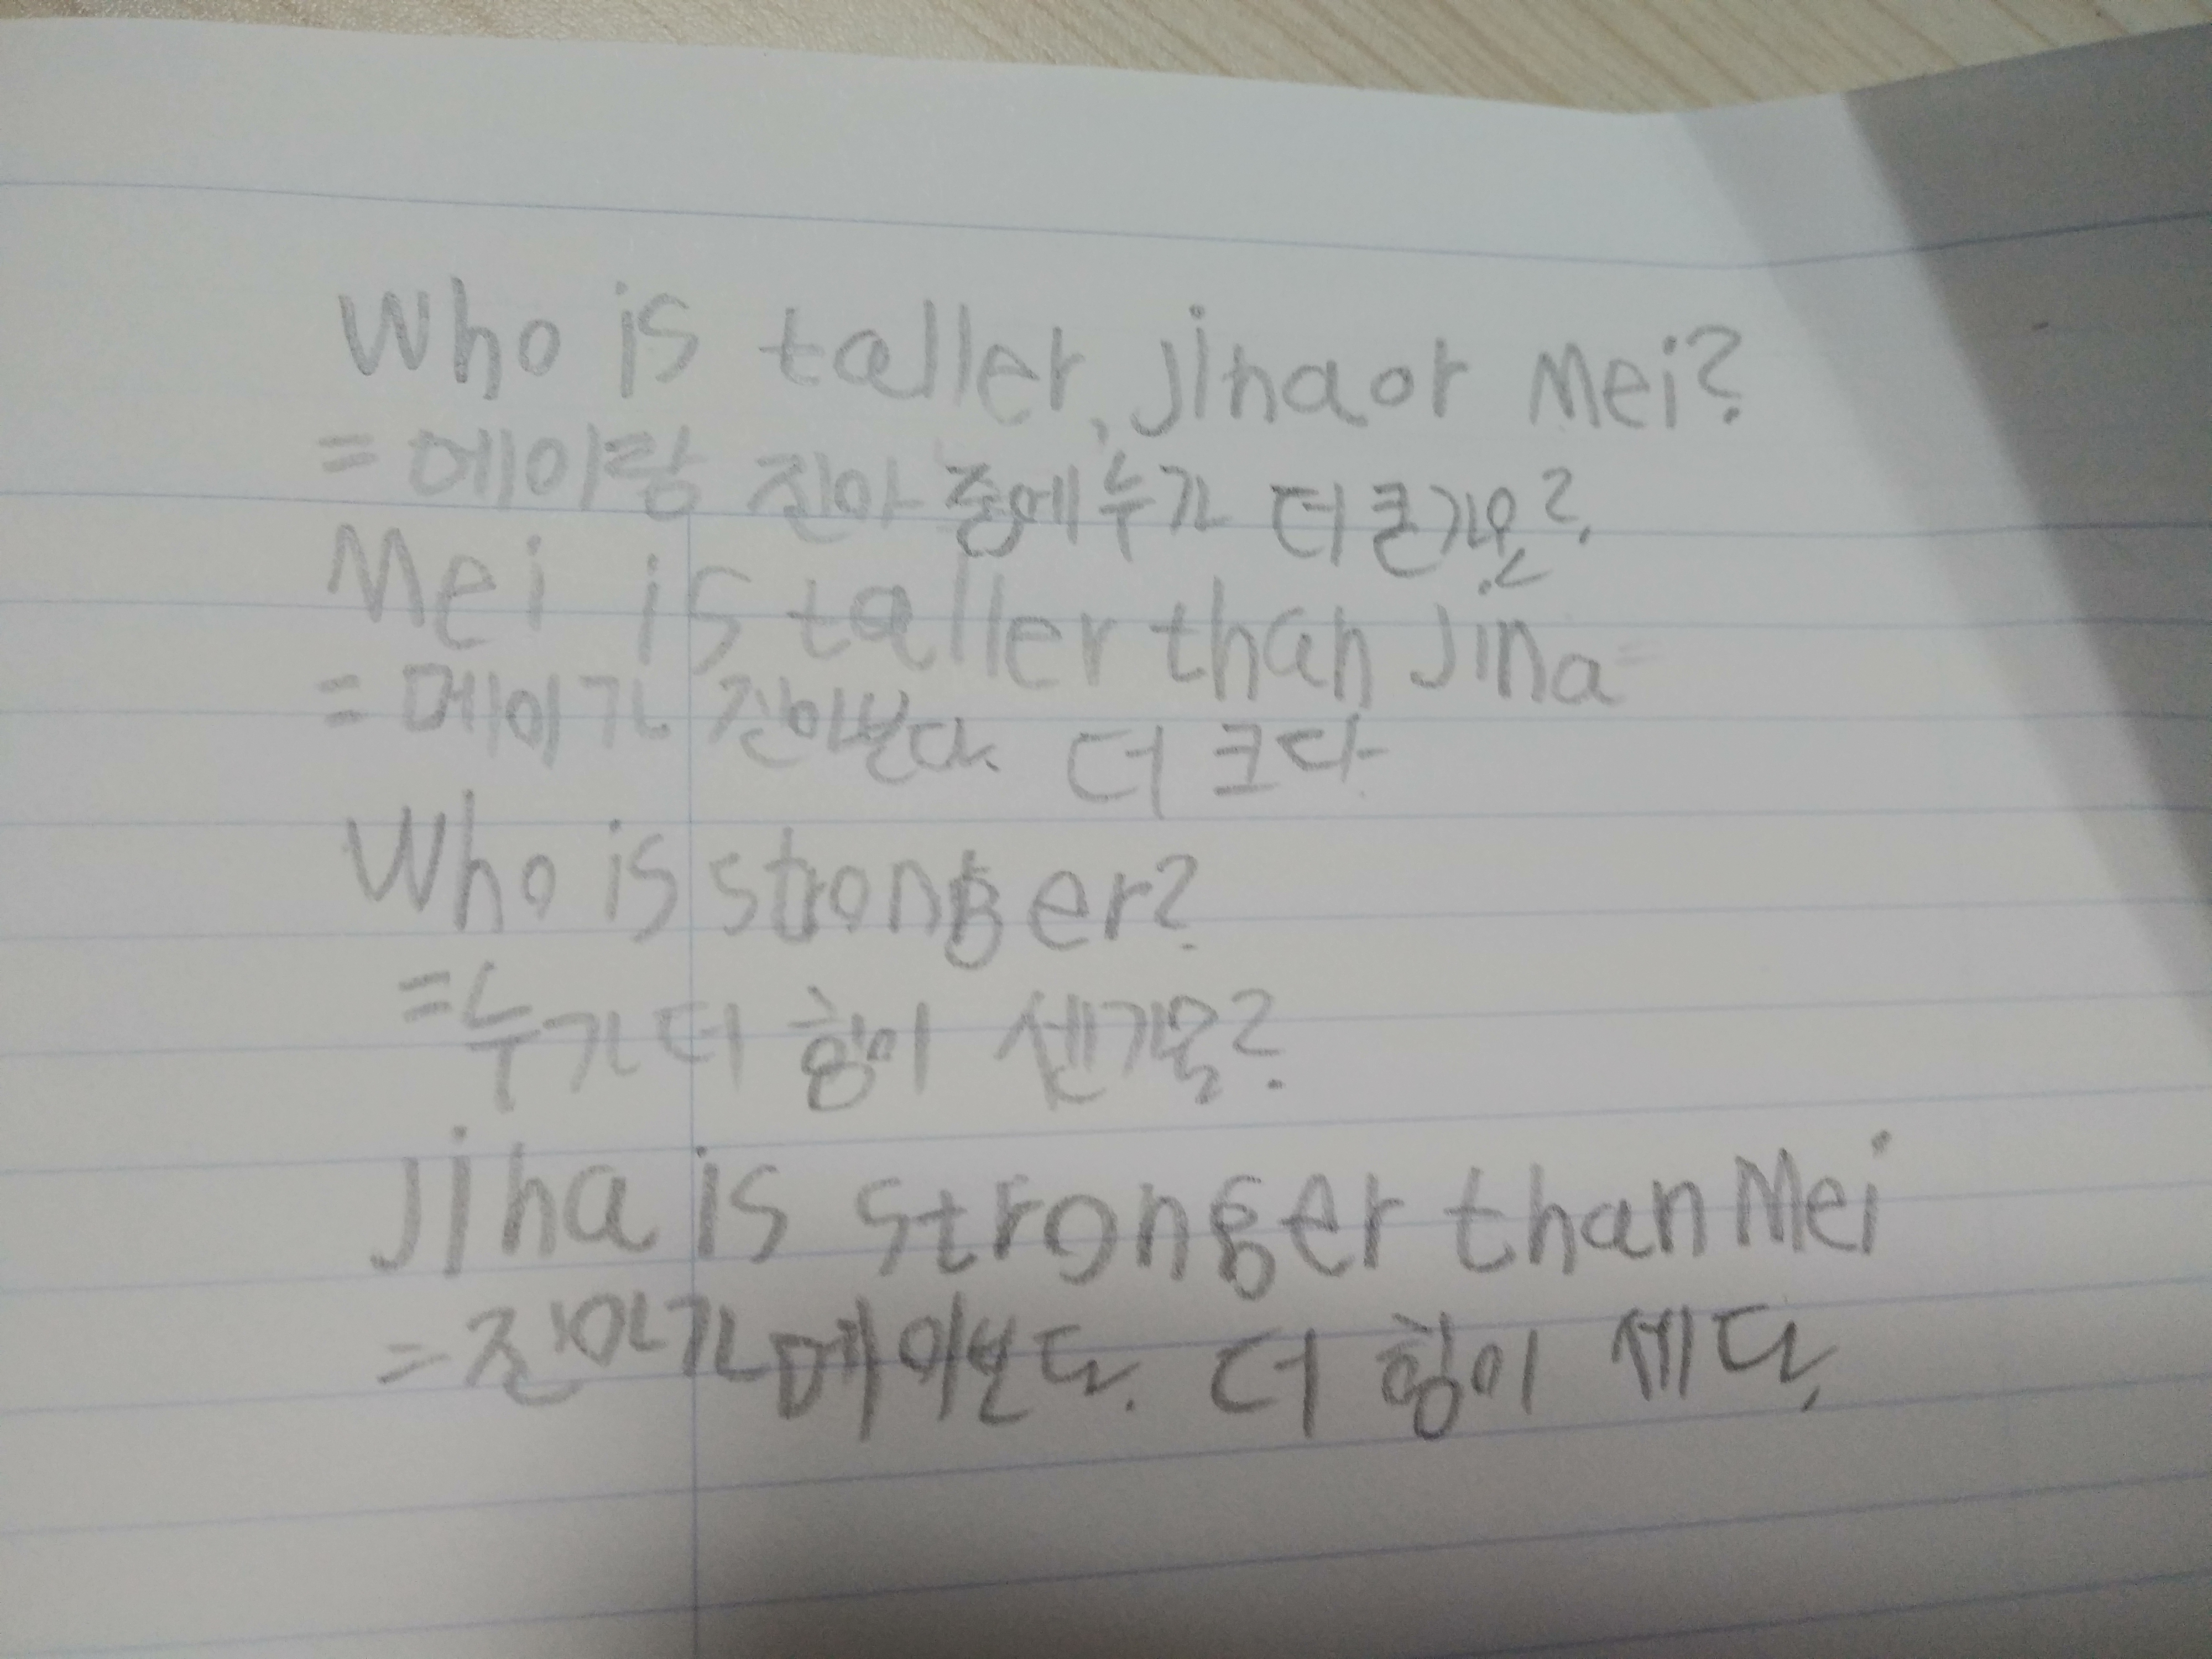 Who is taller, Jina or Mei?
= 메이랑 진아 중에 누가 더 큰가요?
Mei is taller than Jina
= 메이가 진아보다 더 크다
Who is stronger?
= 누가 더 힘이 센가요?
Jina is stronger than Mei
= 진아가 메이보다 더 힘이 세다